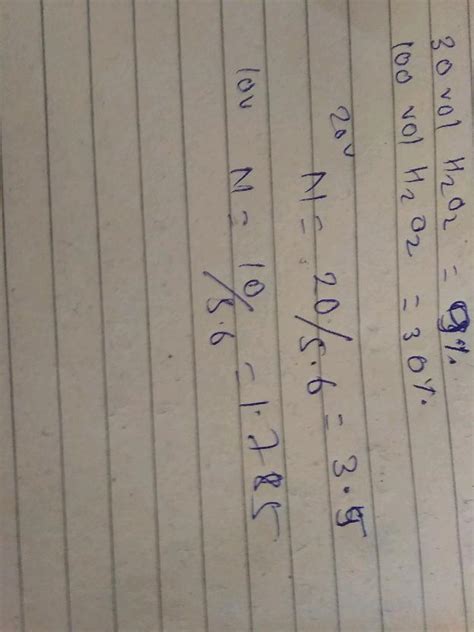 30 vol H₂O₂ = 9%.
100 vol H₂O₂ = 30%.
20v
N = 20/5.6 = 3.5
10v N = 10/5.6 = 1.785